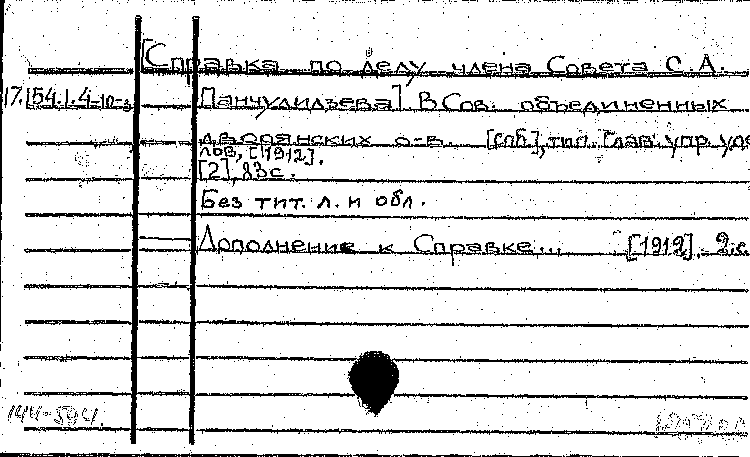 [Справка по делу члена Совета С.А.
17.154.1.4-10-3 Панчулидзева] В Сов. объединенных
дворянских о-в. [Спб], тип. Глав. упр. уде
лов, [1912].
[2], 83с.
Без тит. л. и обл.
Дополнение к Справке... [1912]. 2 с.
144-594.